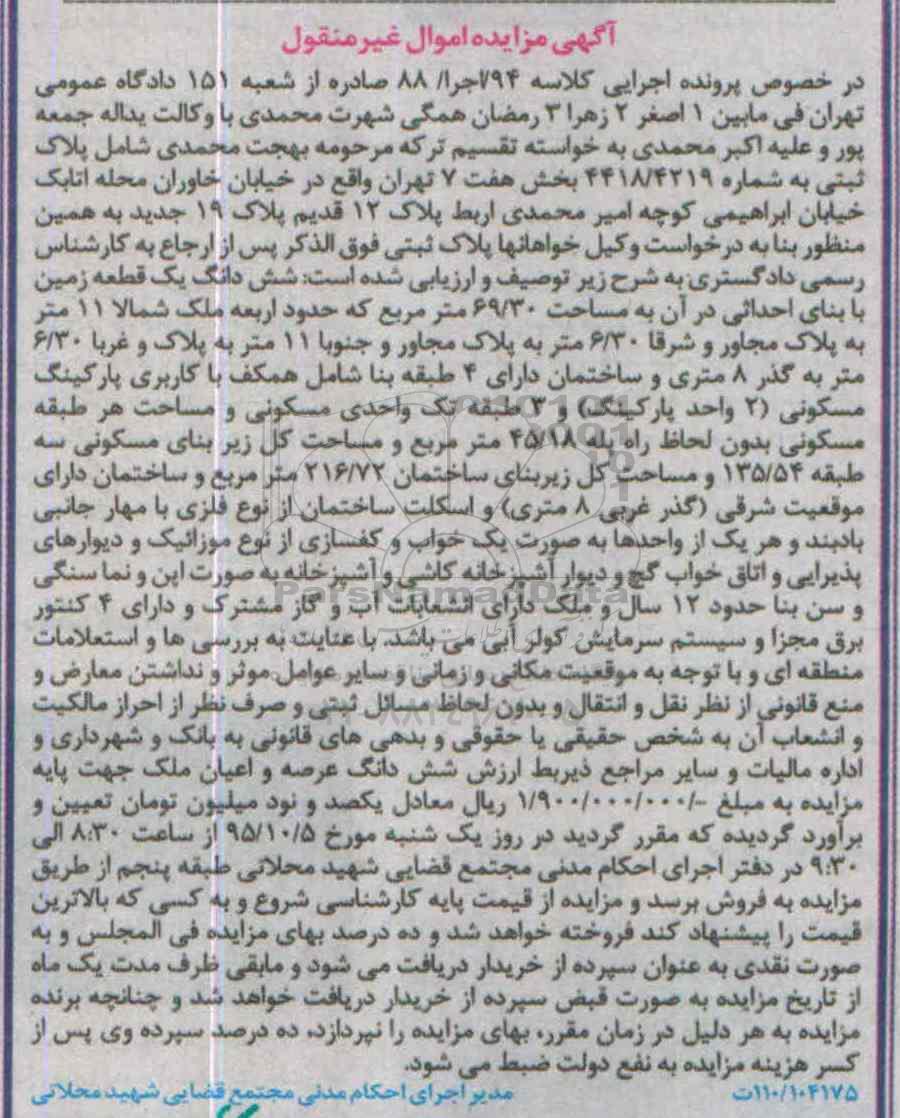 آگهی مزایده اموال غیر منقول
در خصوص پرونده اجرایی کلاسه ۹۴/اجرا/ ۸۸ صادره از شعبه ۱۵۱ دادگاه عمومی
تهران فی مابین ۱ اصغر ۲ زهرا ۳ رمضان همگی شهرت محمدی با وکالت یداله جمعه
پور و علیه اکبر محمدی به خواسته تقسیم ترکه مرحومه بهجت محمدی شامل پلاک
ثبتی به شماره ۴۴۱۸/۴۲۱۹ بخش هفت ۷ تهران واقع در خیابان خاوران محله اتابک
خیابان ابراهیمی کوچه امیر محمدی اربط پلاک ۱۲ قدیم پلاک ۱۹ جدید به همین
منظور بنا به درخواست وکیل خواهانها پلاک ثبتی فوق الذکر پس از ارجاع به کارشناس
رسمی دادگستری به شرح زیر توصیف و ارزیابی شده است: شش دانگ یک قطعه زمین
با بنای احداثی در آن به مساحت ۶۹/۳۰ متر مربع که حدود اربعه ملک شمالا ۱۱ متر
به پلاک مجاور و شرقا ۶/۳۰ متر به پلاک مجاور و جنوبا ۱۱ متر به پلاک و غربا ۶/۳۰
متر به گذر ۸ متری و ساختمان دارای ۴ طبقه بنا شامل همکف با کاربری پارکینگ
مسکونی (۲ واحد پارکینگ) و ۳ طبقه تک واحدی مسکونی و مساحت هر طبقه
مسکونی بدون لحاظ راه پله ۴۵/۱۸ متر مربع و مساحت کل زیر بنای مسکونی سه
طبقه ۱۳۵/۵۴ و مساحت کل زیربنای ساختمان ۲۱۶/۷۲ متر مربع و ساختمان دارای
موقعیت شرقی (گذر غربی ۸ متری) و اسکلت ساختمان از نوع فلزی با مهار جانبی
بادبند و هر یک از واحدها به صورت یک خواب و کفسازی از نوع موزائیک و دیوارهای
پذیرایی و اتاق خواب گچ و دیوار آشپزخانه کاشی و آشپزخانه به صورت اپن و نما سنگی
و سن بنا حدود ۱۲ سال و ملک دارای انشعابات آب و گاز مشترک و دارای ۴ کنتور
برق مجزا و سیستم سرمایش کولر آبی می باشد. با عنایت به بررسی ها و استعلامات
منطقه ای و با توجه به موقعیت مکانی و زمانی و سایر عوامل موثر و نداشتن معارض و
منع قانونی از نظر نقل و انتقال و بدون لحاظ مسائل ثبتی و صرف نظر از احراز مالکیت
و انشعاب آن به شخص حقیقی یا حقوقی و بدهی های قانونی به بانک و شهرداری و
اداره مالیات و سایر مراجع ذیربط ارزش شش دانگ عرصه و اعیان ملک جهت پایه
مزایده به مبلغ -/۱/۹۰۰/۰۰۰/۰۰۰ ریال معادل یکصد و نود میلیون تومان تعیین و
برآورد گردیده که مقرر گردید در روز یک شنبه مورخ ۹۵/۱۰/۵ از ساعت ۸:۳۰ الی
۹:۳۰ در دفتر اجرای احکام مدنی مجتمع قضایی شهید محلاتی طبقه پنجم از طریق
مزایده به فروش برسد و مزایده از قیمت پایه کارشناسی شروع و به کسی که بالاترین
قیمت را پیشنهاد کند فروخته خواهد شد و ده درصد بهای مزایده فی المجلس و به
صورت نقدی به عنوان سپرده از خریدار دریافت می شود و مابقی ظرف مدت یک ماه
از تاریخ مزایده به صورت قبض سپرده از خریدار دریافت خواهد شد و چنانچه برنده
مزایده به هر دلیل در زمان مقرر، بهای مزایده را نپردازد، ده درصد سپرده وی پس از
کسر هزینه مزایده به نفع دولت ضبط می شود.
۱۱۰/۱۰۴۱۷۵ت مدیر اجرای احکام مدنی مجتمع قضایی شهید محلاتی
ParsNamadData